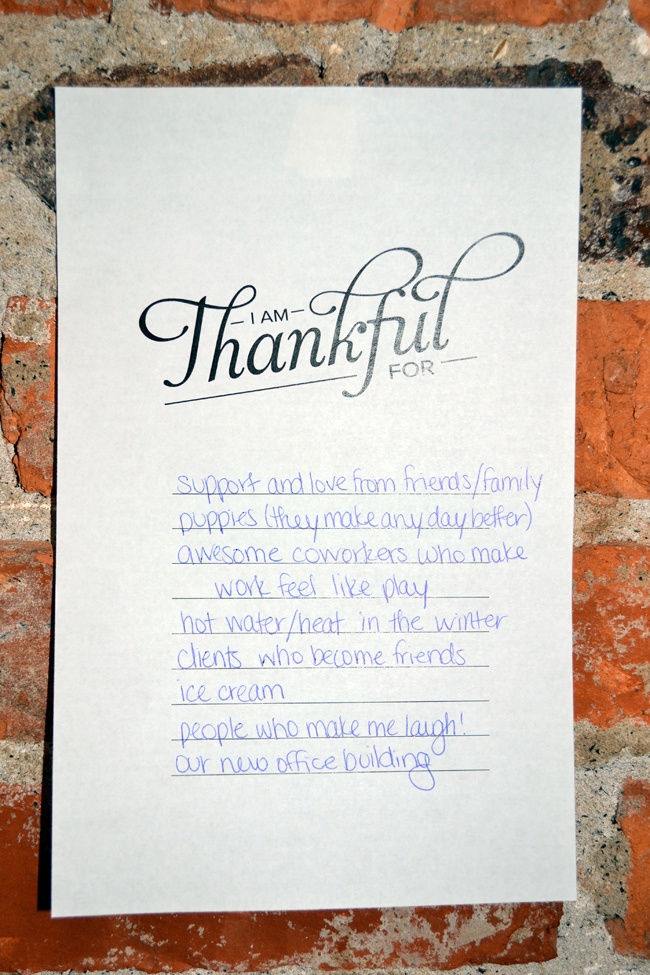 I AM
Thankful
FOR
support and love from friends/family
puppies (they make any day better)
awesome coworkers who make
work feel like play
hot water/heat in the winter
clients who become friends
ice cream
people who make me laugh!
our new office building